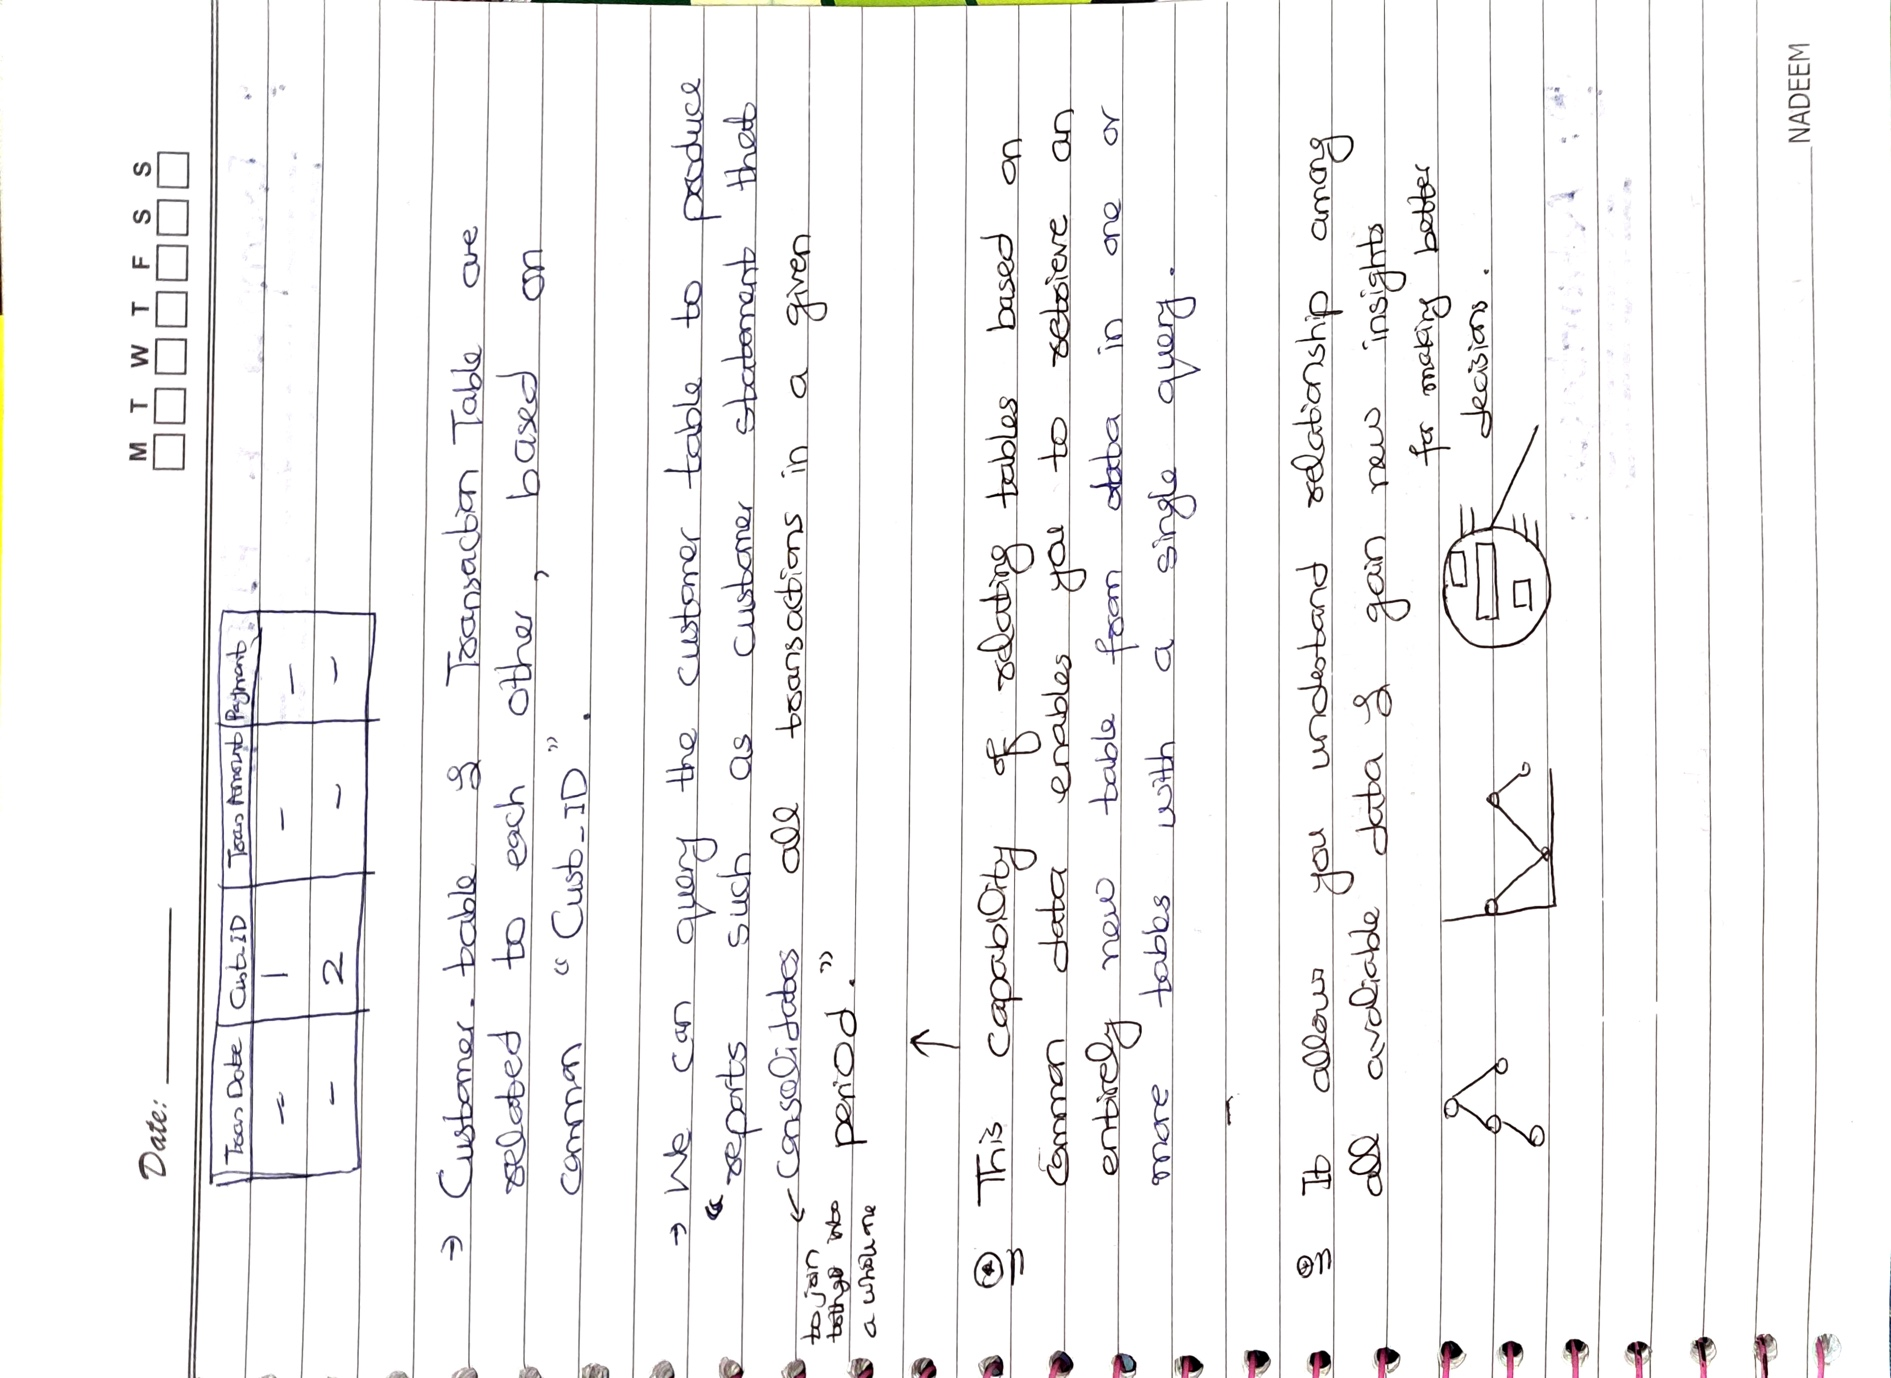 Date:
M T W T F S S
Trans Date | Cust-ID | Trans Amount | Payment
- | 1 | - | -
- | 2 | - | -
→ Customer table & Transaction Table are
related to each other, based on
common "Cust_ID".
→ We can query the customer table to produce
"reports such as customer statement that
← Consolidates all transactions in a given
period."
to join
things into
a whole one
↑
This capability of relating tables based on
Common data enables you to retrieve an
entirely new table from data in one or
more tables with a single query.
It allows you understand relationship among
all avaliable data & gain new insights
for making better
decisions.
NADEEM